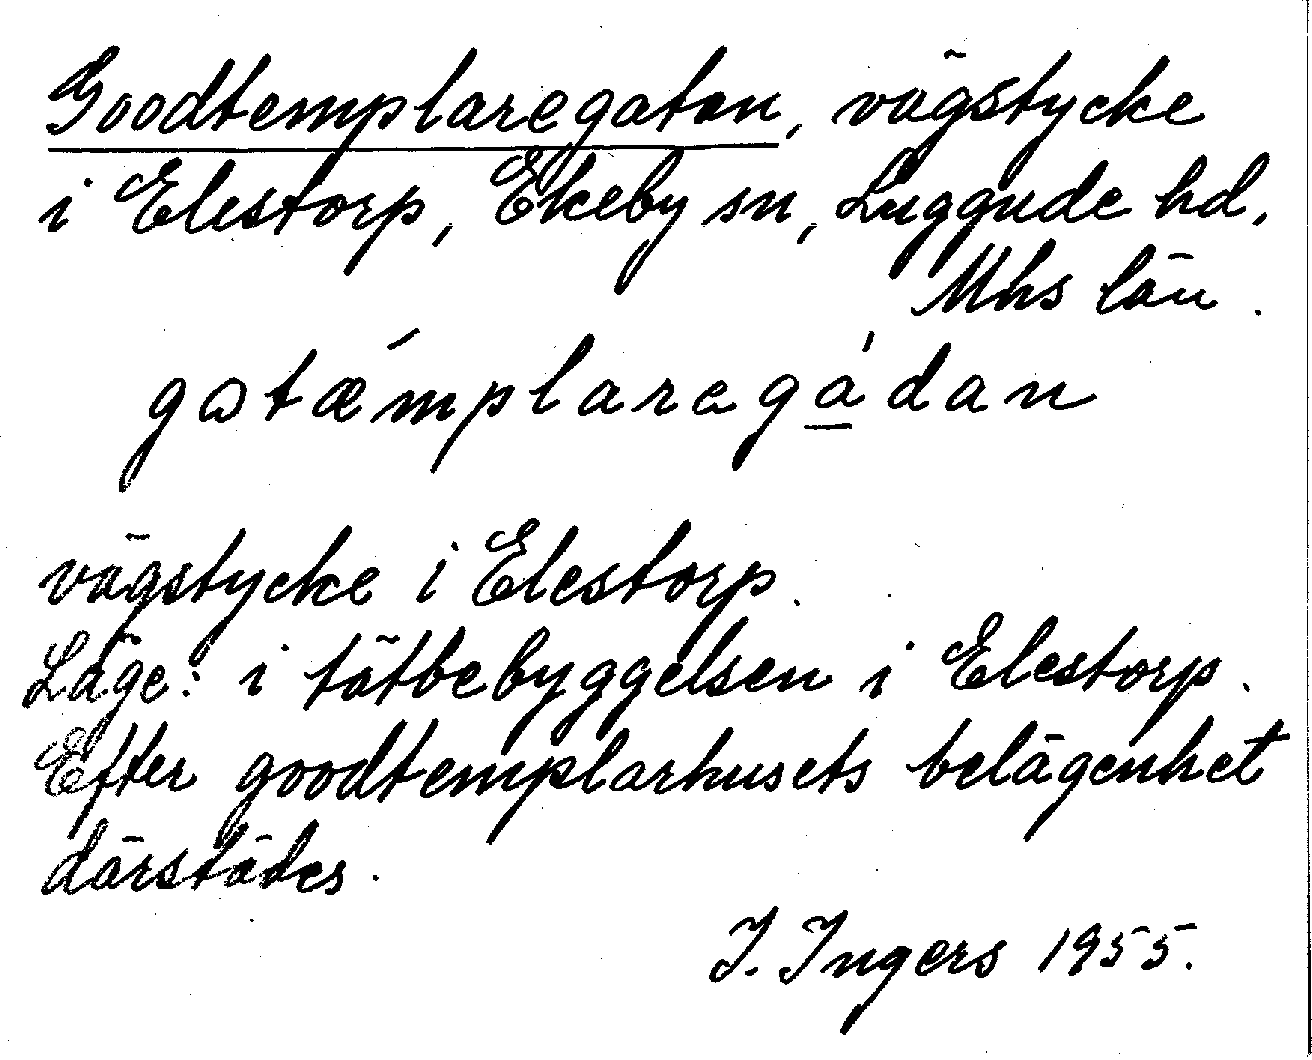 Goodtemplaregatan, vägstycke
i Elestorp, Ekeby sn, Luggude hd,
Mhs län.
gɷtǽmplaregá̱dan
vägstycke i Elestorp.
Läge: i tätbebyggelsen i Elestorp.
Efter goodtemplarhusets belägenhet
därstädes.
I. Ingers 1955.